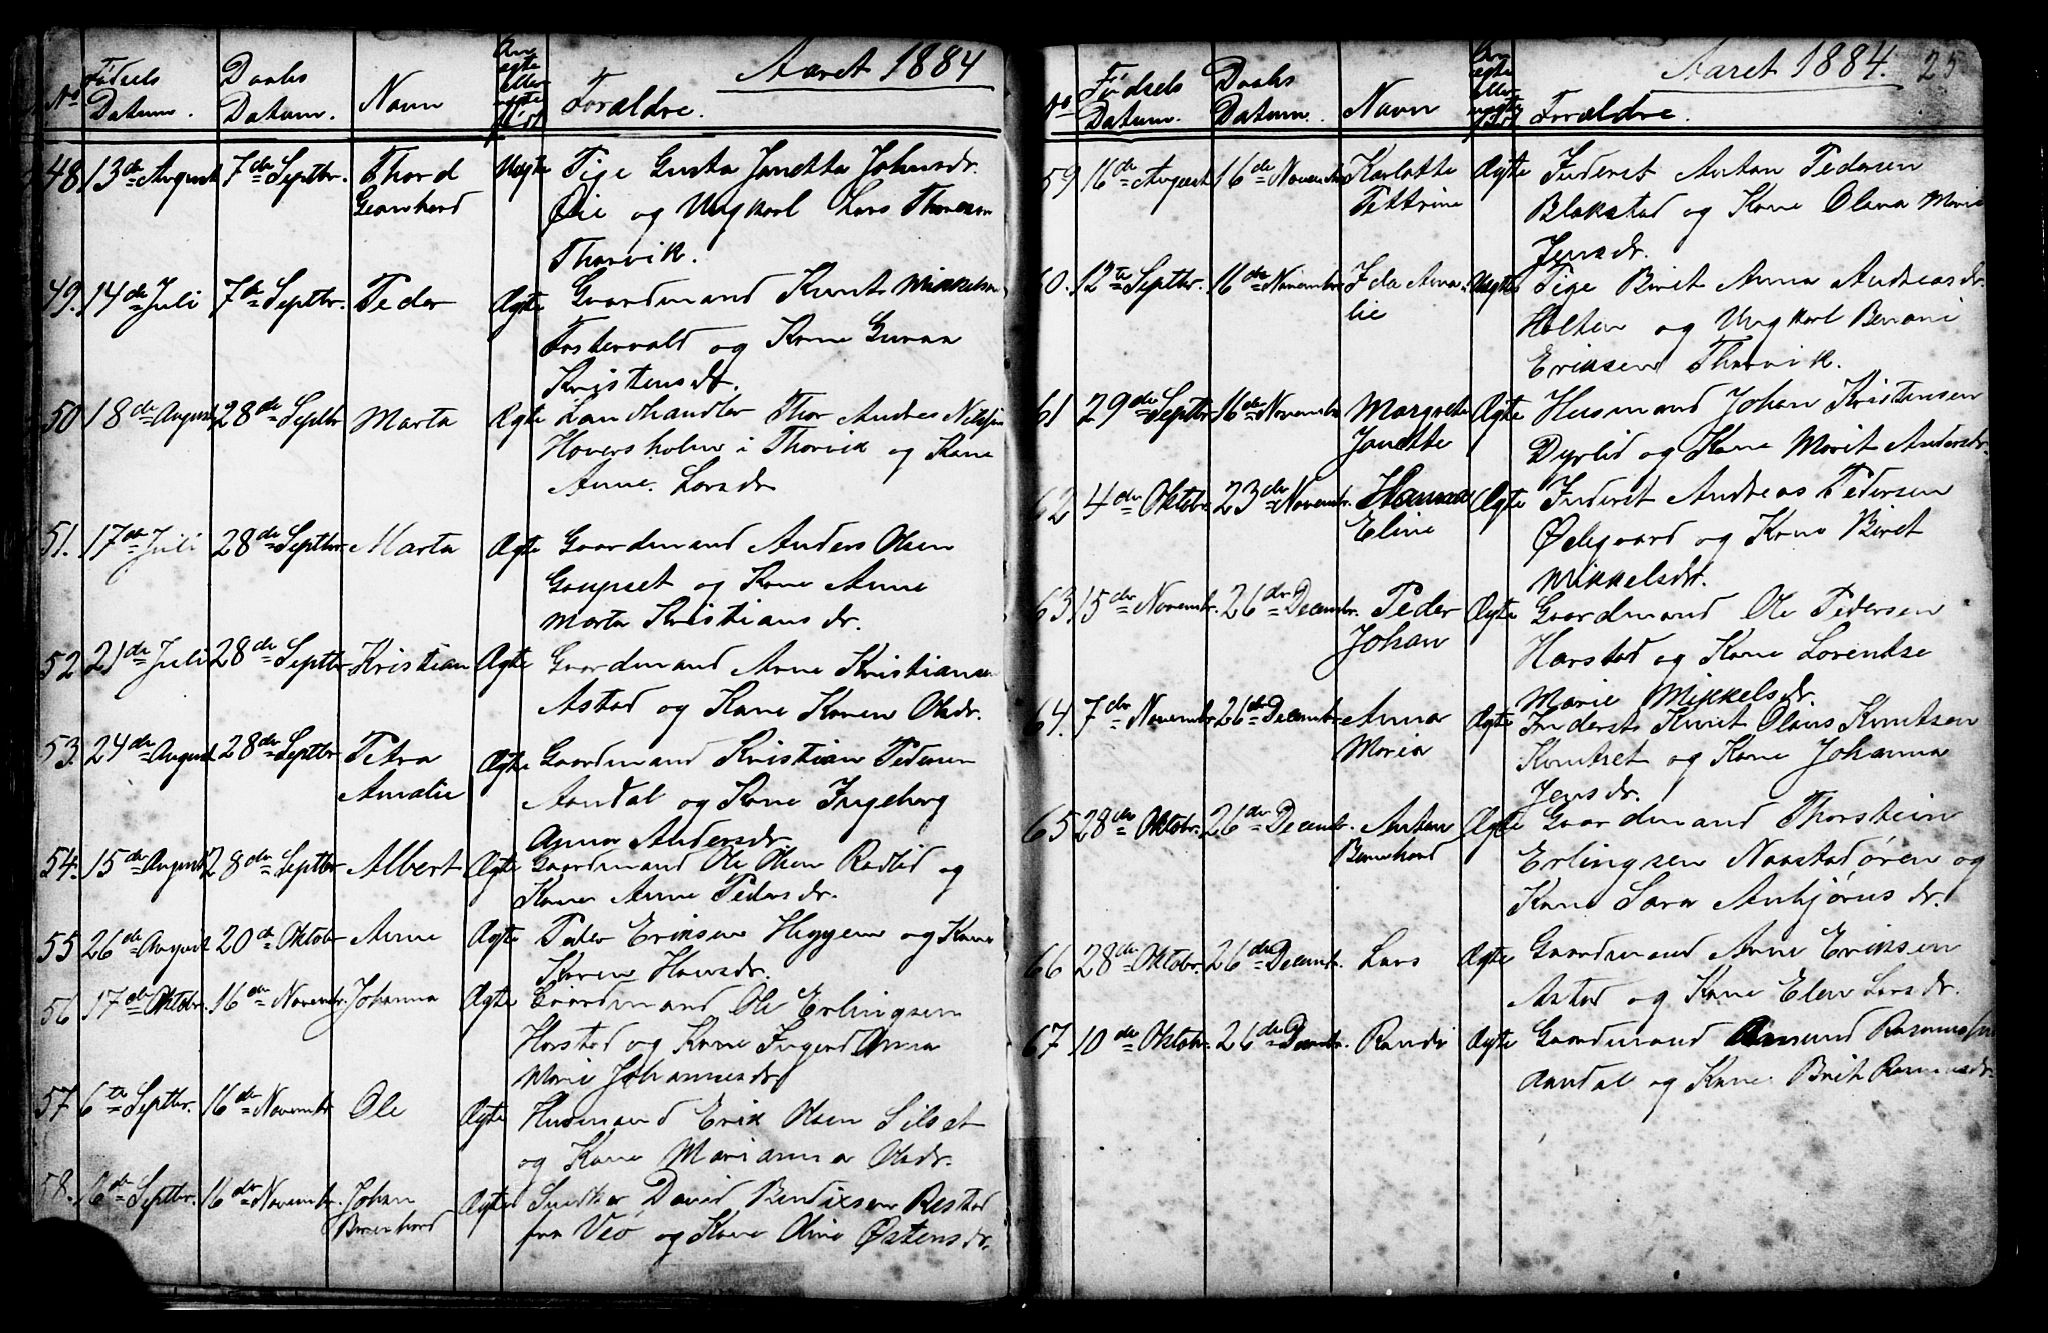 Aaret 1884
No Fødsels Datum. Daabs Datum. Navn Om ægte eller uægte født Forældre.
48 13de August 7de Septbr. Thord Uægte Pige Gusta Janetta Johnsdr.
Gearhard Øie og Ungkarl Lars Thoresen
Thorvik.
49. 14de Juli 7de Septbr. Peder Ægte Gaardmand Knut Mikkelsen
Fostervald og Kone Gunna
Kristensdr.
50 18de August 28de Septbr Marta Ægte Landhandler Thor Andreas Nilssen
Hoversholm i Thorvik og Kone
Anne Larsdr
51. 17de Juli 28de Septbr. Marta Ægte Gaardmand Anders Olsen
Gaupset og Kone Anne
Marta Kristiansdr.
52 21de Juli 28de Septbr Kristian Ægte Gaardmand Arne Kristiansen
Astad og Kone Karen Olsdr.
53. 24de August 28de Septbr Petra Ægte Gaardmand Kristian Pedersen
Amalie Aandal og Kone Ingeborg
Anna Andersdr.
54. 15de August 28de Septbr Albert Ægte Gaardmand Ole Olsen Rødlid og
Kone Anne Pedersdr.
55 26de August 20de Oktobr Anne Ægte Peder Eriksen Heggem og Kone
Karen Hansdr.
56 17de Oktobr. 16de Novembr. Johanna Ægte Gaardmand Ole Erlingsen
Harstad og Kone Ingerd Anna
Marie Johannesdr
57 6te Septbr. 16de Novembr Ole Ægte Husmand Erik Olsen Silset
og Kone Marianna Olsdr.
58. 16de Septbr. 16de Novembr. Johan Ægte Snedker David Bendixsen Restad
Bernhard fra Veø og Kone Oline Østensdr.
Aaret 1884. 25
No Fødsels Datum. Daabs Datum. Navn Om ægte eller uægte født Forældre.
59 16de August 16de Novembr Karlotte Ægte Inderst Anton Pedersen
Pettrine Blakstad og Kone Olava Marie
Jensdr.
60. 12te Septbr. 16de Novembr Ida Ama- Uægte Pige Birit Anna Andreasdr.
lie Holten og Ungkarl Benoni
Eriksen Thorvik.
61 29de Septbr 16de Novembr Margrete Ægte Husmand Johan Kristensen
Janette Dyrlid og Kone Marit Andersdr.
62 4de Oktobr 23de Novembr. Hanna Ægte Inderst Andreas Pedersen
Eline Ødegaard og Kone Biret
Mikkelsdr.
63. 15de Novembr. 26de Decembr. Peder Ægte Gaardmand Ole Pedersen
Johan Harstad og Kone Lorentse
Marie Mikkelsdr.
64. 7de Novembr 26de Decembr Anna Ægte Inderst Knut Olaus Knutsen
Maria Knutset og Kone Johanna
Jensdr.
65 28de Oktobr. 26de Decembr. Anton Ægte Gaardmand Thorstein
Bernhard Erlingsen Naastadøren og
Kone Sara Anbjørnsdr.
66 28de Oktobr. 26de Decembr. Lars Ægte Gaardmand Arne Eriksen
Astad og Kone Elen Larsdr.
67 10de Oktobr. 26de Decembr Randi Ægte Gaardmand Amund Rasmussen
Aandal og Kone Brit Rasmusdr.